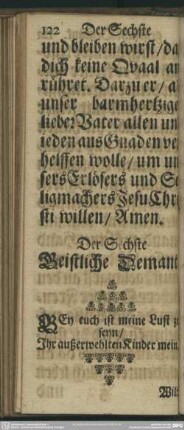 122 Der Sechste
und bleiben wirst/da
dich keine Qvaal an
rühret. Darzu er/ a
unser barmhertzige
liebe? Vater allen un
ieden aus Gnaden ve
helffen wolle/um un
sers Erlösers und Se
ligmachers Jesu Chri
sti willen/ Amen.
Der Sechste
Geistliche Demant
BEy euch ist meine Lust z
seyn/
Ihr außerwehlten Kinder mein
Wilt